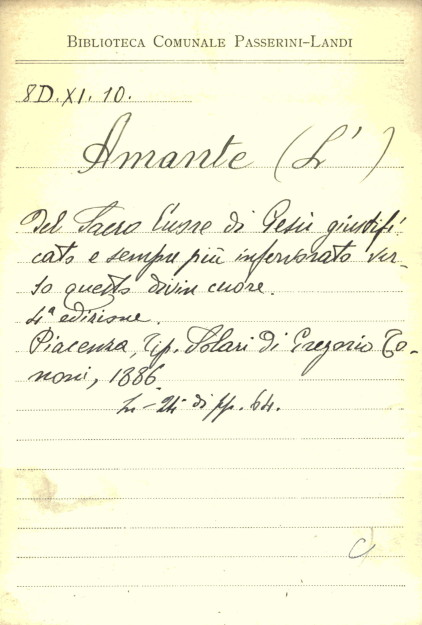 BIBLIOTECA COMUNALE PASSERINI-LANDI
8D.XI.10.
Amante (L')
Del Sacro Cuore di Gesù giustifi-
cato e sempre più infervorato ver-
so questo divin cuore.
4ª edizione.
Piacenza, Tip. Solari di Gregorio To-
noni, 1886.
In-24 di pp. 64.
C